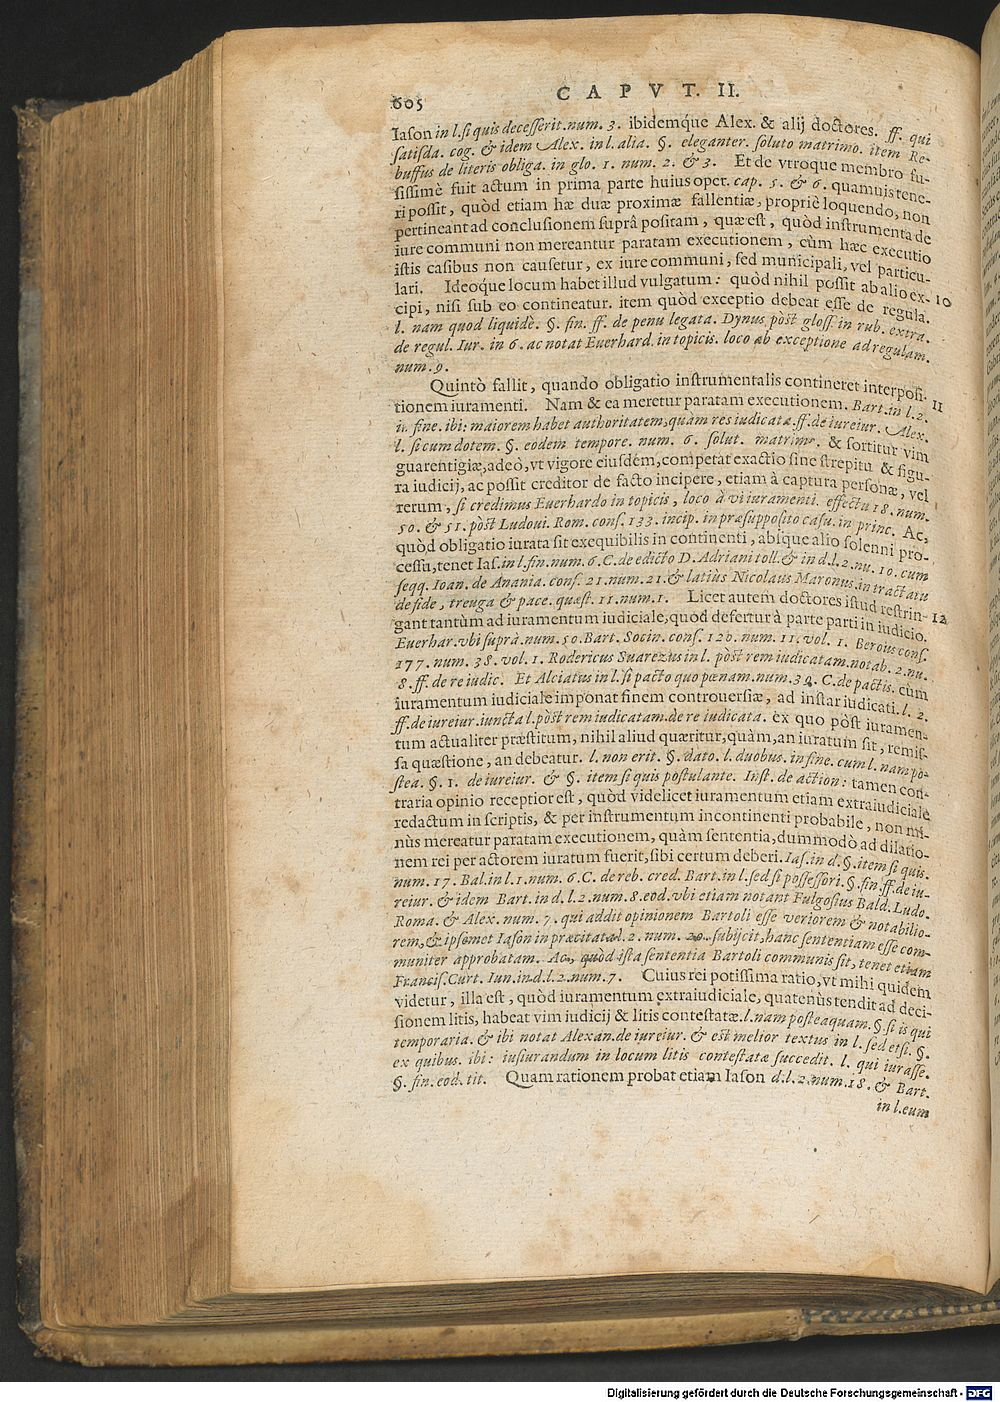 605 CAPVT. II.
Iason in l. si quis decesserit. num. 3. ibidemque Alex. & alij doctores. ff. qui
satisda. cog. & idem Alex. in l. alia. §. eleganter. soluto matrimo. item Re-
buffus de literis obliga. in glo. 1. num. 2. & 3. Et de vtroque membro fu-
sissimè fuit actum in prima parte huius oper. cap. 5. & 6. quamuis tene-
ri possit, quòd etiam hæ duæ proximæ fallentiæ, propriè loquendo, non
pertineant ad conclusionem suprâ positam, quæ est, quòd instrumenta de
iure communi non mereantur paratam executionem, cùm hæc executio
istis casibus non causetur, ex iure communi, sed municipali, vel particu-
lari. Ideoque locum habet illud vulgatum: quòd nihil possit ab alio ex- 10
cipi, nisi sub eo contineatur. item quòd exceptio debeat esse de regula.
l. nam quod liquidè. §. fin. ff. de penu legata. Dynus pòst gloss. in rub. extra.
de regul. Iur. in 6. ac notat Euerhard. in topicis. loco ab exceptione ad regulam.
num. 9.
Quintò fallit, quando obligatio instrumentalis contineret interposi- 11
tionem iuramenti. Nam & ea meretur paratam executionem. Bart. in l. 2.
in fine. ibi: maiorem habet authoritatem, quàm res iudicatæ. ff. de iureiur. Alex.
l. si cum dotem. §. eodem tempore. num. 6. solut. matrimo. & sortitur vim
guarentigiæ, adeò, vt vigore eiusdem, competat exactio sine strepitu & figu-
ra iudicij, ac possit creditor de facto incipere, etiam à captura personæ, vel
rerum, si credimus Euerhardo in topicis, loco à vi iuramenti. effectu 18. num.
50. & 51. pòst Ludoui. Rom. cons. 133. incip. in præsupposito casu. in princ. Ac,
quòd obligatio iurata sit exequibilis in continenti, absque alio solenni pro-
cessu, tenet Ias. in l. fin. num. 6. C. de edicto D. Adriani toll. & in d. l. 2. nu. 10. cum
seqq. Ioan. de Anania. cons. 21. num. 21. & latiùs Nicolaus Maronus. in tractatu
de fide, treuga & pace. quæst. 11. num. 1. Licet autem doctores istud restrin- 12
gant tantùm ad iuramentum iudiciale, quod defertur à parte parti in iudicio.
Euerhar. vbi suprà. num. 50. Bart. Socin. cons. 126. num. 11. vol. 1. Berous cons.
177. num. 38. vol. 1. Rodericus Suarezius in l. pòst rem iudicatam. notab. 2. nu.
8. ff. de re iudic. Et Alciatus in l. si pacto quo pœnam. num. 39. C. de pactis. cùm
iuramentum iudiciale imponat finem controuersiæ, ad instar iudicati. l. 2.
ff. de iureiur. iuncta l. pòst rem iudicatam. de re iudicata. ex quo pòst iuramen-
tum actualiter præstitum, nihil aliud quæritur, quàm, an iuratum sit, remis-
sa quæstione, an debeatur. l. non erit. §. dato. l. duobus. in fine. cum l. nam po-
stea. §. 1. de iureiur. & §. item si quis postulante. Inst. de action: tamen con-
traria opinio receptior est, quòd videlicet iuramentum etiam extraiudiciale
redactum in scriptis, & per instrumentum incontinenti probabile, non mi-
nùs mereatur paratam executionem, quàm sententia, dummodò ad dilatio-
nem rei per actorem iuratum fuerit, sibi certum deberi. Ias. in d. §. item si quis.
num. 17. Bal. in l. 1. num. 6. C. de reb. cred. Bart. in l. sed si possessori. §. fin. ff. de iu-
reiur. & idem Bart. in d. l. 2. num. 8. eod. vbi etiam notant Fulgosius Bald. Ludo.
Roma. & Alex. num. 7. qui addit opinionem Bartoli esse veriorem & notabilio-
rem, & ipsemet Iason in præcitata l. 2. num. 20. subijcit, hanc sententiam esse com-
muniter approbatam. Ac, quòd ista sententia Bartoli communis sit, tenet etiam
Francis. Curt. Iun. in d. l. 2. num. 7. Cuius rei potissima ratio, vt mihi quidem
videtur, illa est, quòd iuramentum extraiudiciale, quatenùs tendit ad deci-
sionem litis, habeat vim iudicij & litis contestatæ. l. nam posteaquam. §. si is qui
temporaria. & ibi notat Alexan. de iureiur. & est melior textus in l. sed etsi. §.
ex quibus. ibi: iusiurandum in locum litis contestatæ succedit. l. qui iurasse.
§. fin. eod. tit. Quam rationem probat etiam Iason d. l. 2. num. 18. & Bart.
in l. eum
Digitalisierung gefördert durch die Deutsche Forschungsgemeinschaft - DFG